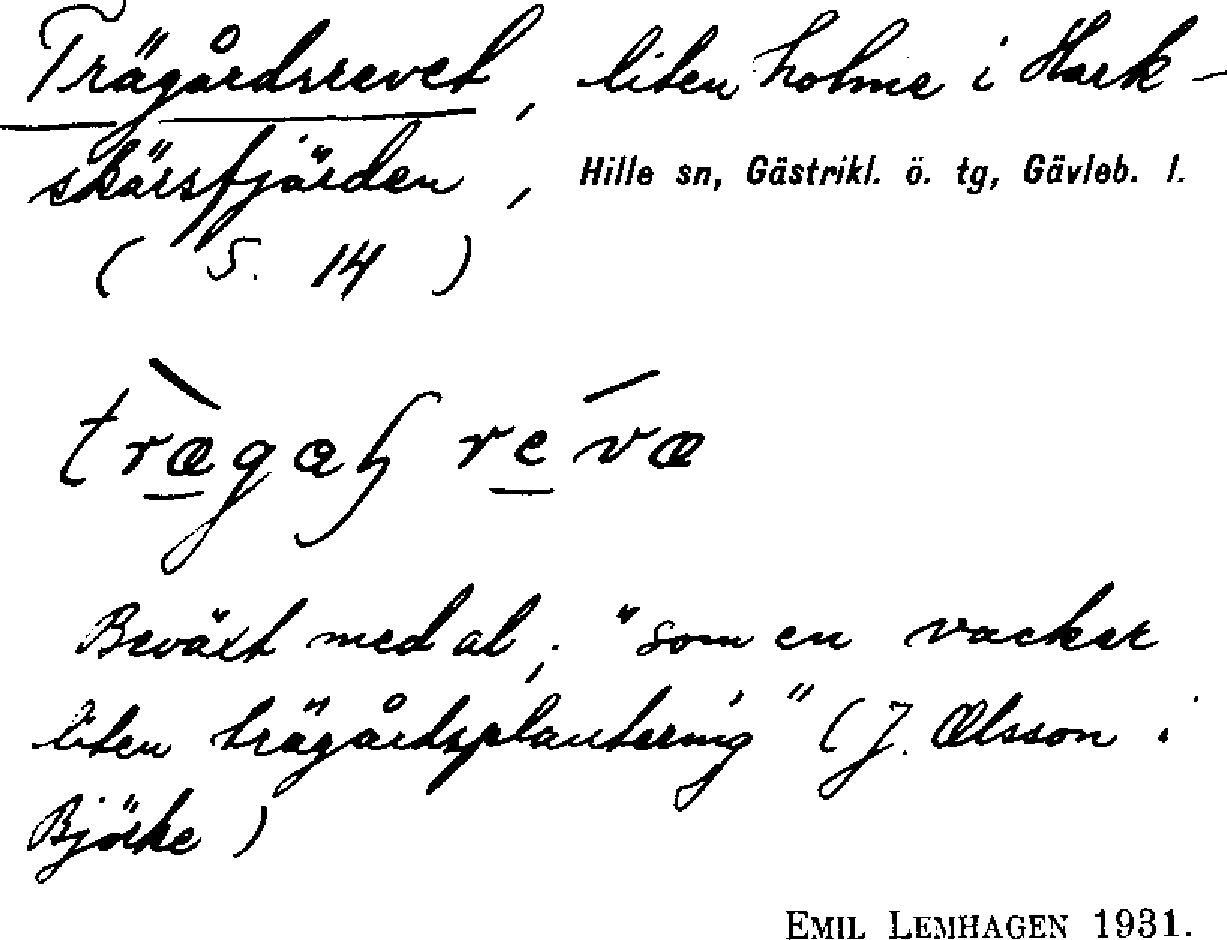 Trägårdsrevet, liten holme i Hark-
skärsfjärden, Hille sn, Gästrikl. ö. tg, Gävleb. l.
(S. 14)
Beväxt med al; "som en vacker
liten trägårdsplantering" (J. Olsson i
Björke)
EMIL LEMHAGEN 1931.